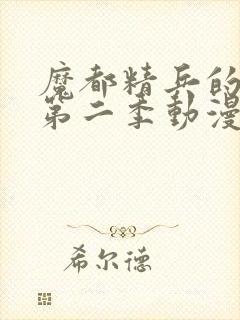 魔都精兵的
第二季動漫
希尔德